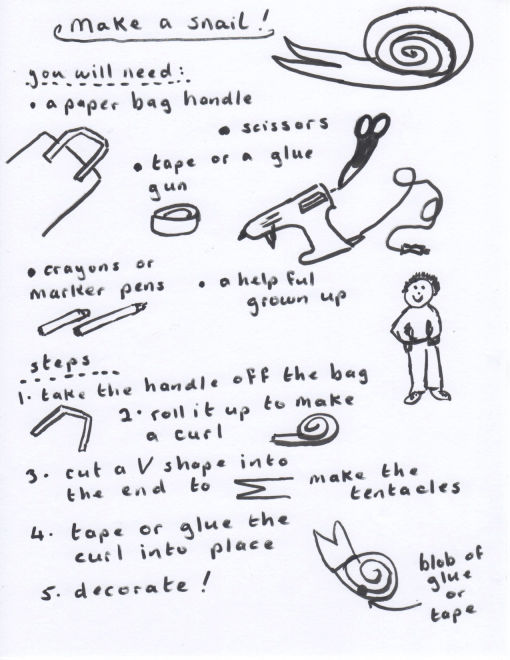 make a snail!
you will need:
• a paper bag handle
• scissors
• tape or a glue
gun
• crayons or
marker pens
• a helpful
grown up
steps
1. take the handle off the bag
2. roll it up to make
a curl
3. cut a V shape into
the end to make the
tentacles
4. tape or glue the
curl into place
5. decorate!
blob of
glue
or
tape